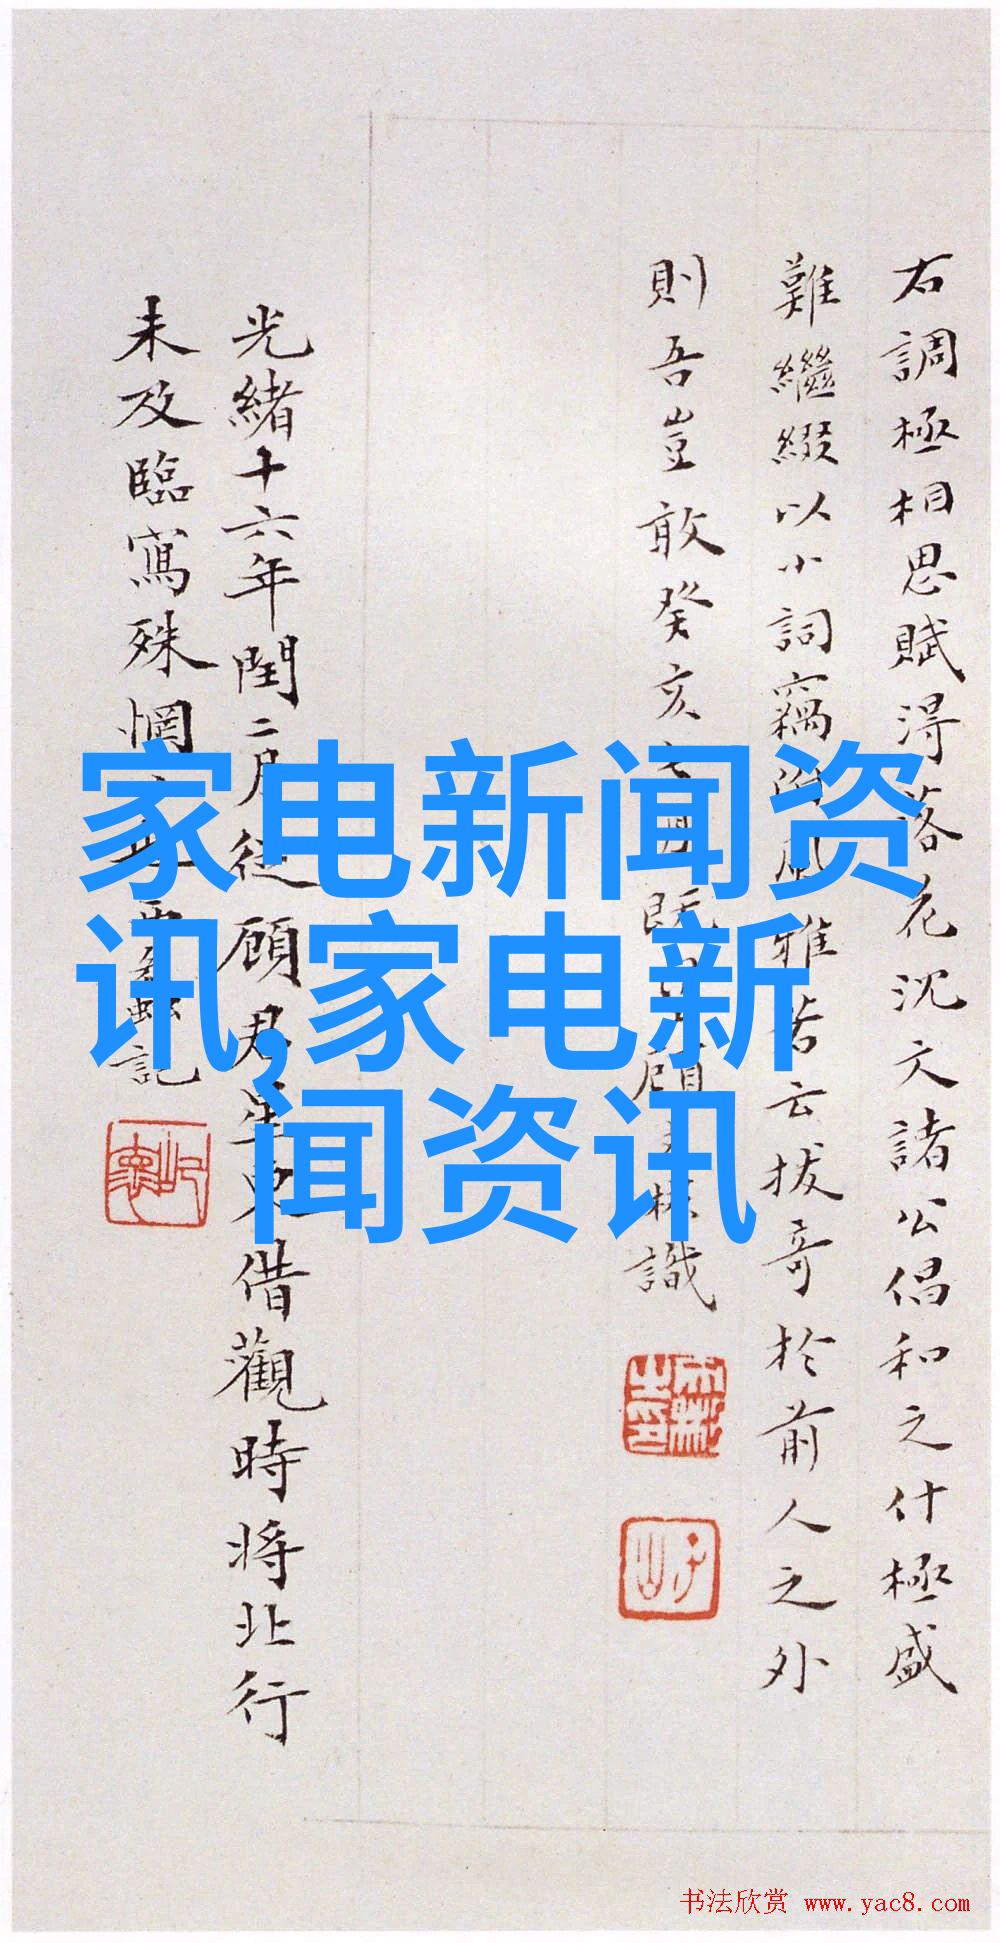 右調極相思賦得落花沈文諸公倡和之什極盛
難繼綴以小詞竊附風雅若云拔奇於前人之外
則吾豈敢癸亥七月既望顧文彬識
光緒十六年閏二月從顧君星東借觀時將北行
未及臨寫殊惘
記
家电新闻资
讯,家电新
闻资讯
书法欣赏 www.yac8.com